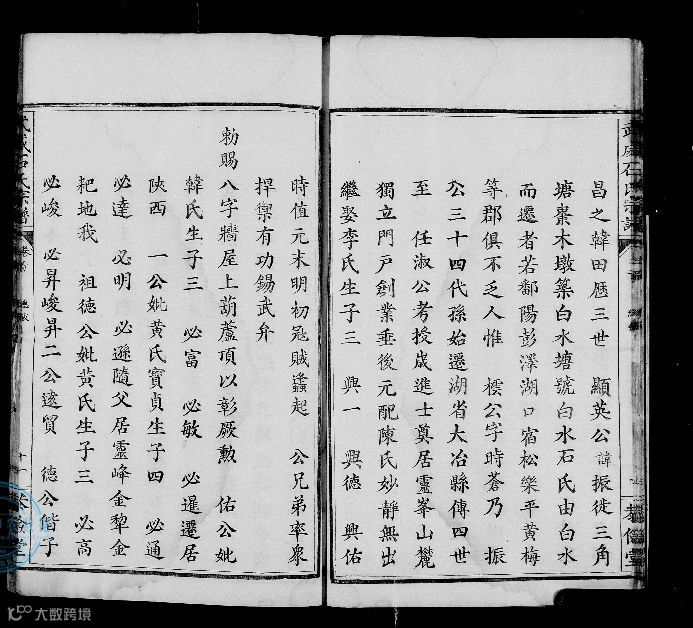 昌之韓田厯三世　顯英公諱振徙三角
塘棗木墩築白水塘號白水石氏由白水
而遷者若鄱陽彭澤湖口宿松樂平黃梅
等郡俱不乏人惟　橒公字時蒼乃　振
公三十四代孫始遷湖省大冶縣傳四世
至　任淑公考授歲進士奠居靈峯山麓
獨立門戶創業垂後元配陳氏妙靜無出
繼娶李氏生子三　興一　興德　興佑
時值元末明初冦賊蠭起　公兄弟率衆
捍禦有功錫武弁
勅賜八字牆屋上葫蘆頂以彰厥勲　佑公妣
韓氏生子三　必富　必敏　必暹遷居
陝西　一公妣黃氏寶貞生子四　必通
必達　必明　必遜隨父居靈峰金犂金
耙地我　祖德公妣黃氏生子三　必高
必峻　必昇峻昇二公遠貿　德公偕子
石氏宗譜
十一
大数跨境